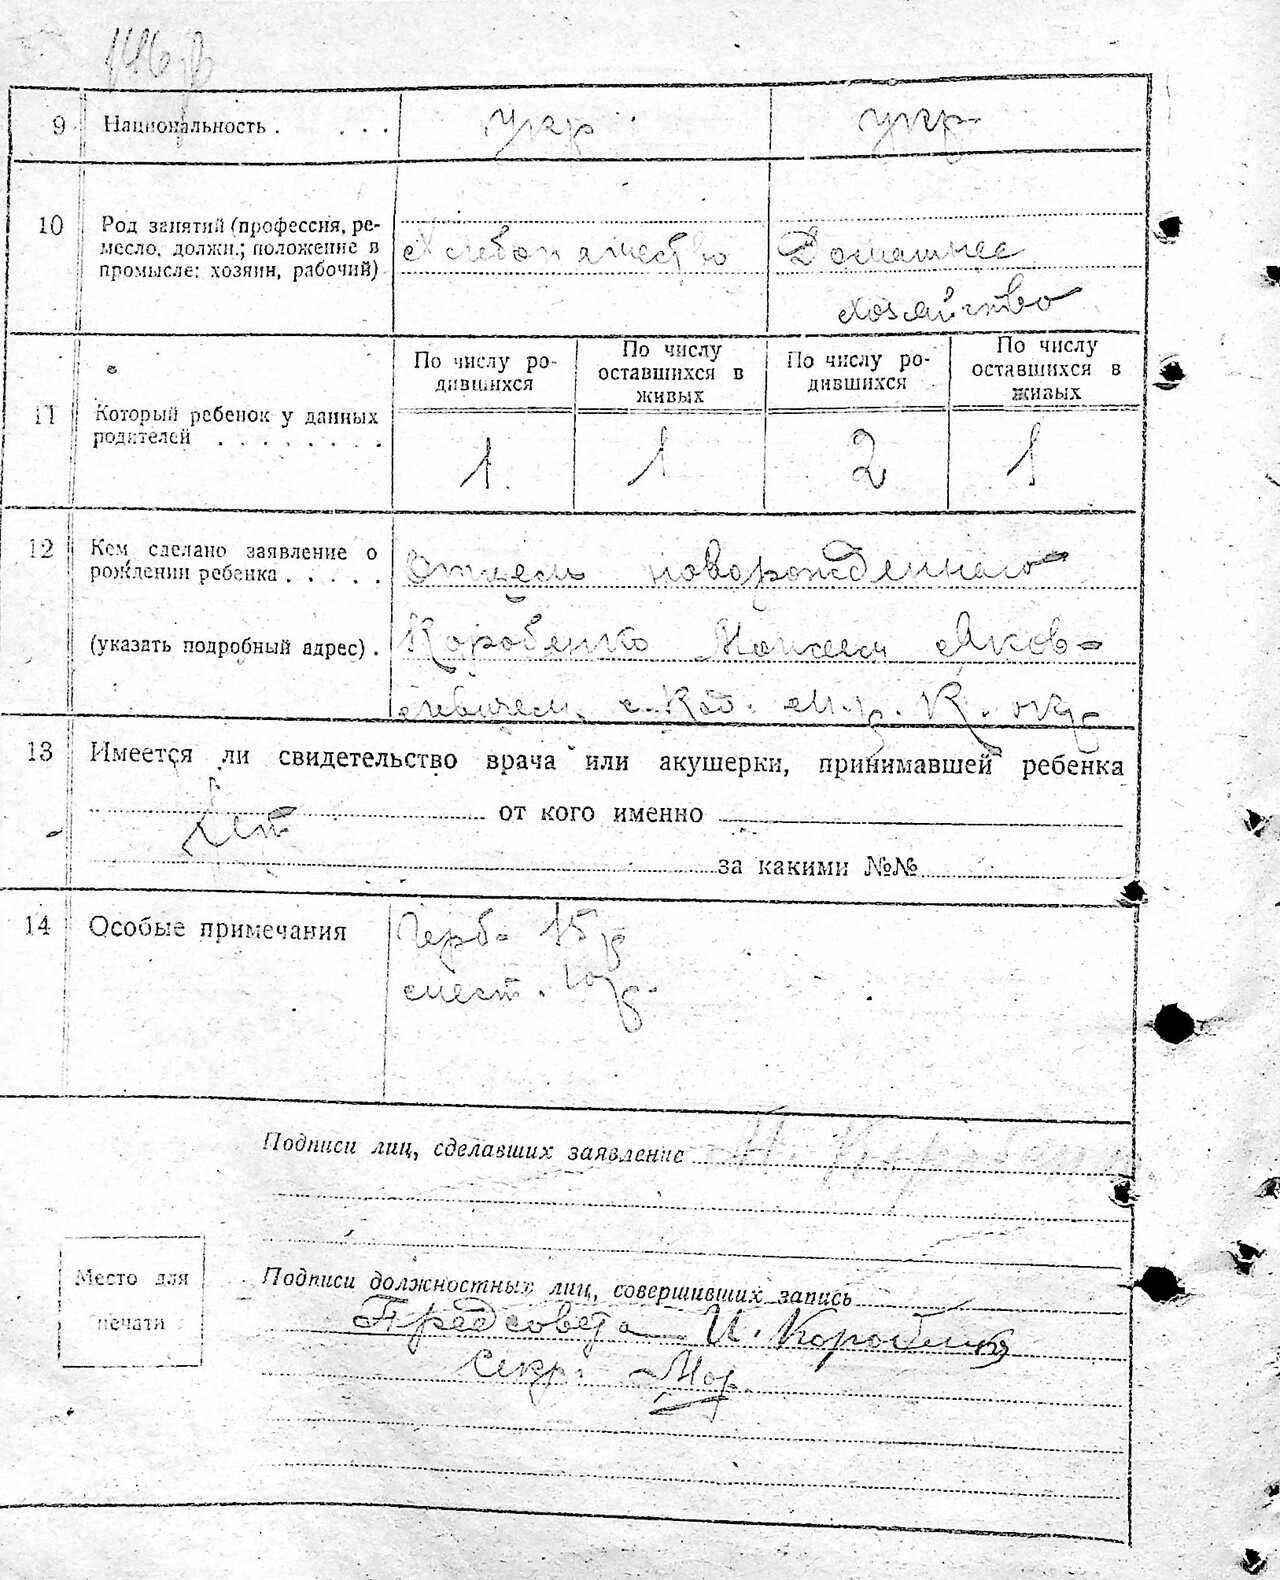 9 Национальность . . . . укр укр
10 Род занятий (профессия, ре-
месло, должн.; положение в
промысле: хозяин, рабочий)
Хлебопашество
Домашнее
хозяйство
По числу ро-
дившихся
По числу
оставшихся в
живых
По числу ро-
дившихся
По числу
оставшихся в
живых
11 Который ребенок у данных
родителей . . . . . . . .
1. 1 2 1
12 Кем сделано заявление о
рождении ребенка . . . . .
(указать подробный адрес) .
Отцем новорожденного
Коробенко Моисеем Яков-
левичем, с. Код. М. р. К. окр
13 Имеется ли свидетельство врача или акушерки, принимавшей ребенка
Нет от кого именно
за какими №№
14 Особые примечания
Герб. 15р
мест. 10р.
Подписи лиц, сделавших заявление М.
Подписи должностных лиц, совершивших запись
Предсовета И.
Секр. Мор.
Место для
печати